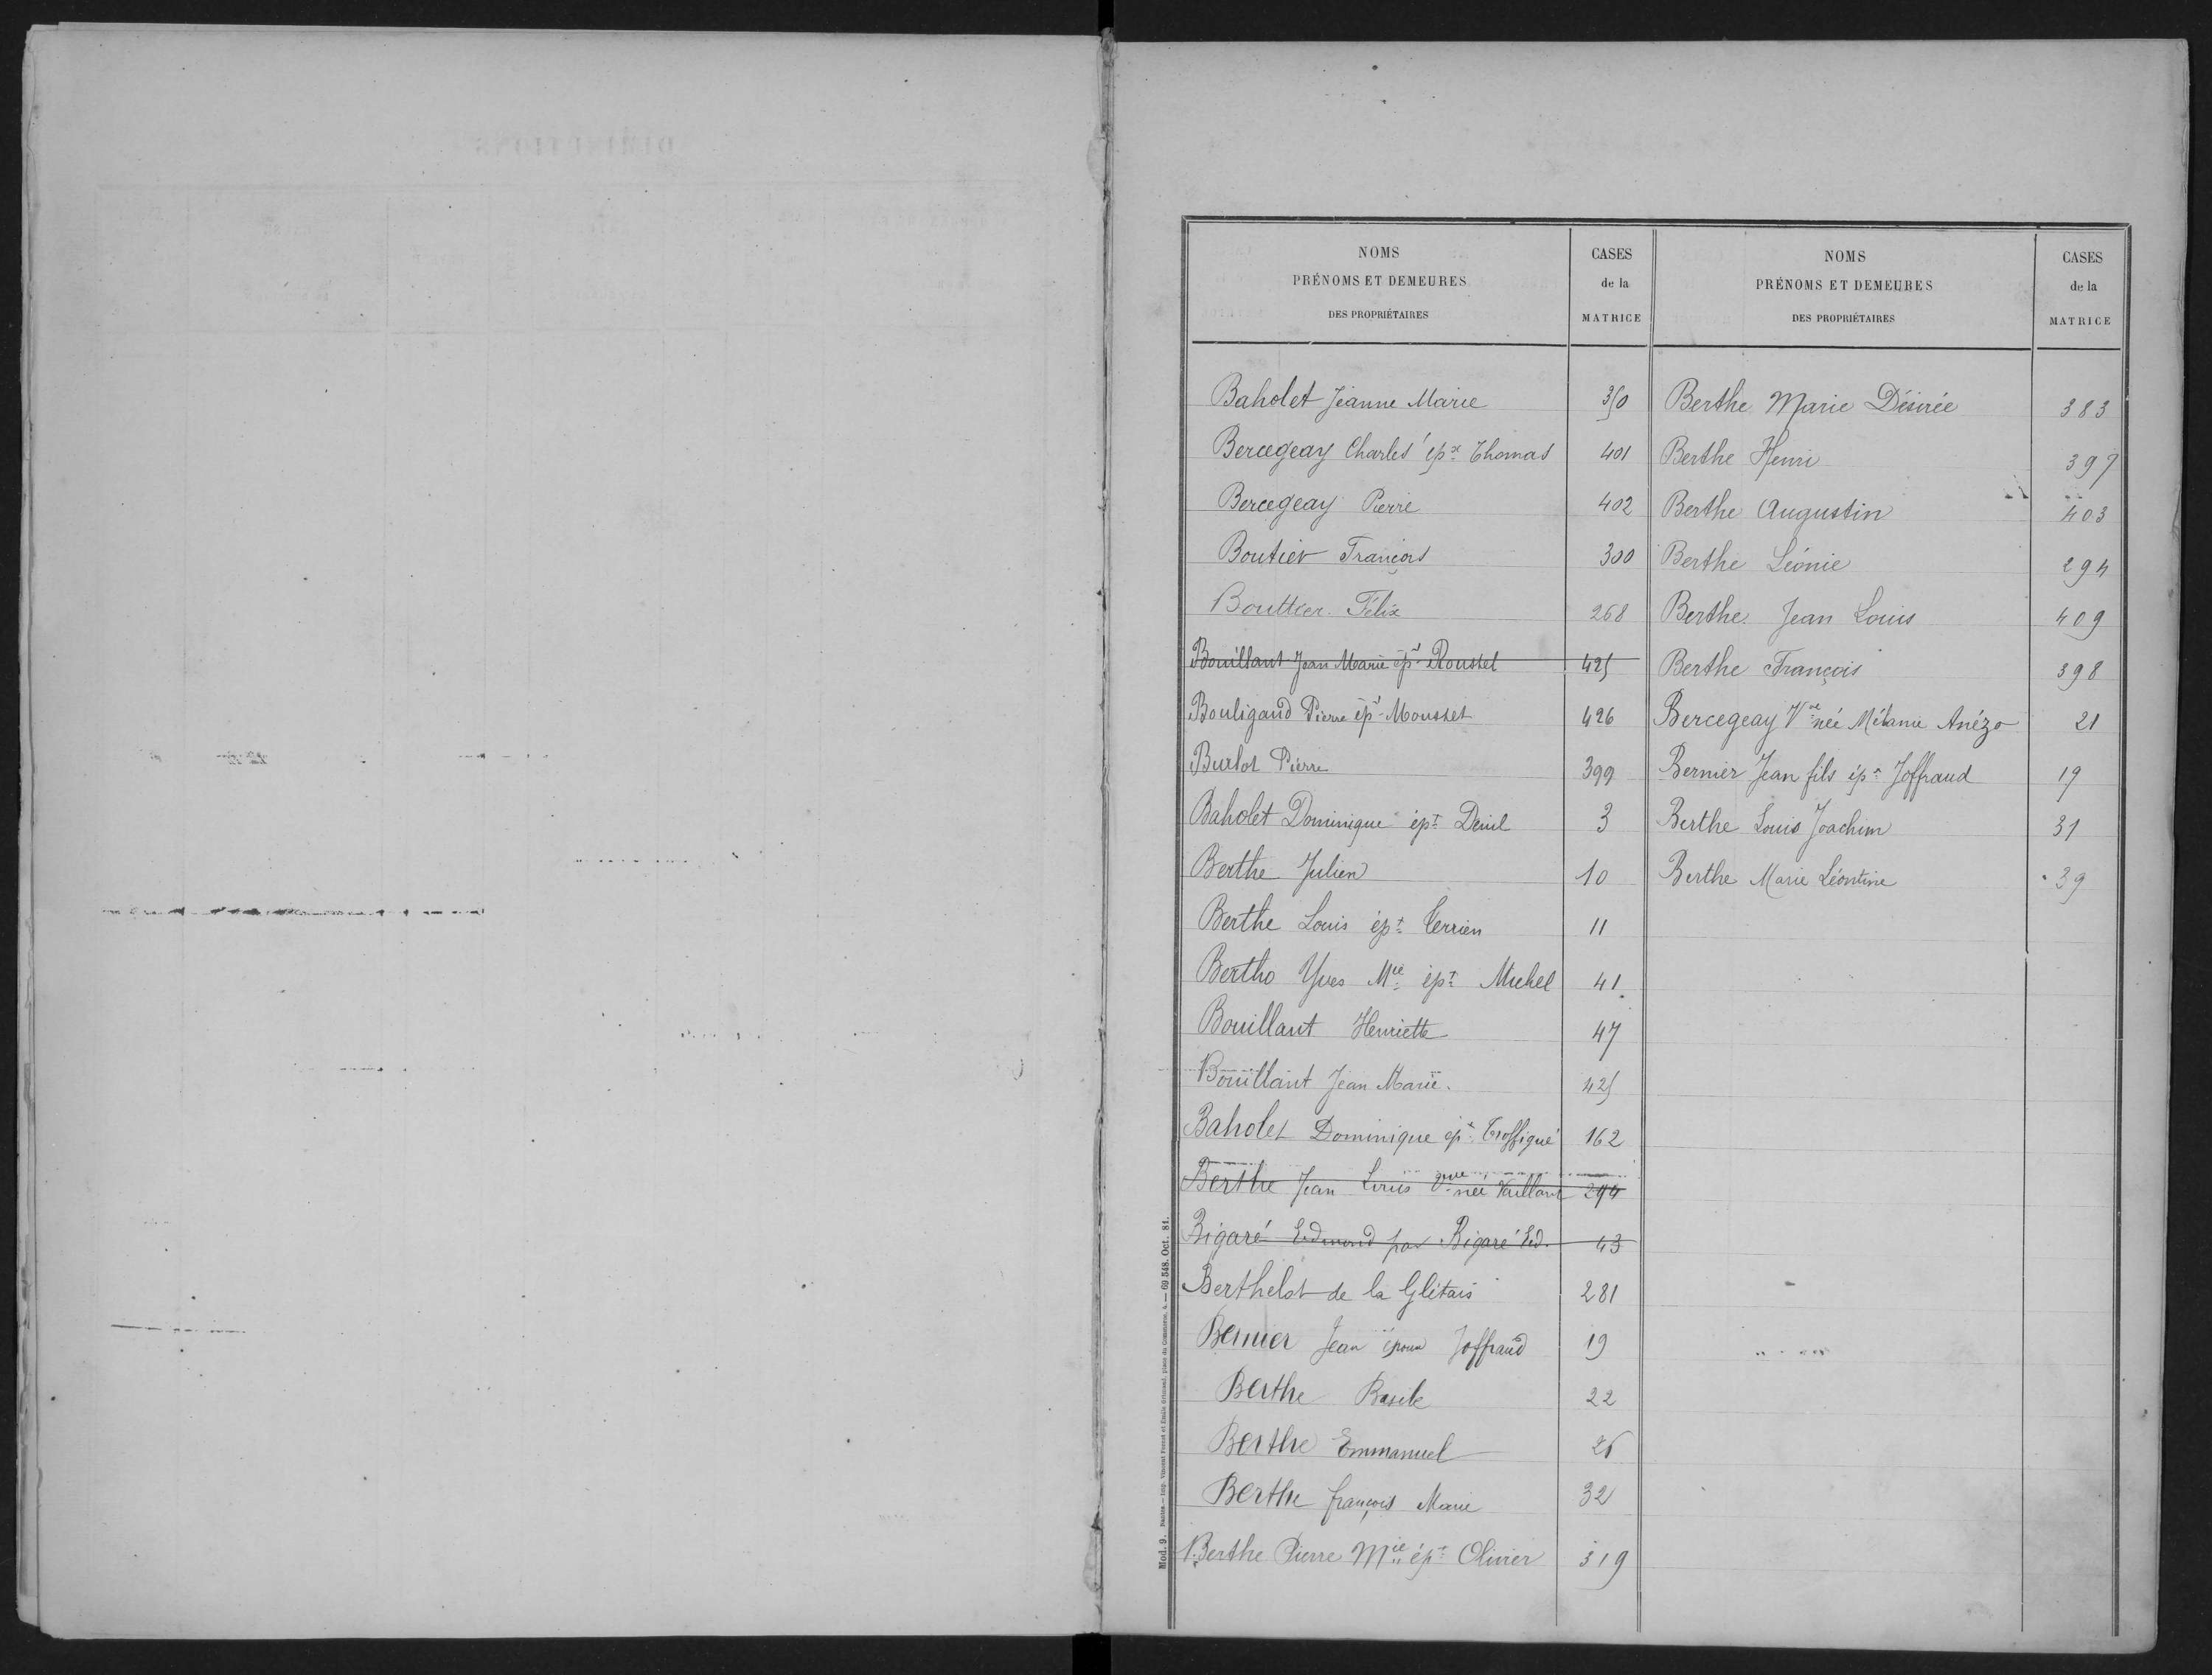 NOMS
PRÉNOMS ET DEMEURES
DES PROPRIÉTAIRES
CASES
de la
MATRICE
Baholet Jeanne Marie 350
Bercegeay Charles épx Thomas 401
Bercegeay Pierre 402
Boutier François 300
Bouttier Félix 268
Bouillant Jean Marie épx Roussel 425
Bouligand Pierre épx Mousset 426
Burlot Pierre 399
Baholet Dominique épx Deuil 3
Berthe Julien 10
Berthe Louis épx Terrien 11
Bertho Yves Mie épx Michel 41
Bouillant Henriette 47
Bouillant Jean Marie. 425
Baholet Dominique épx Troffigué 162
Berthe Jean Louis Vve née Vaillant 294
Bigaré Edmond par Bigaré Ed. 43
Berthelot de la Glétais 281
Bernier Jean époux Joffraud 19
Berthe Basile 22
Berthe Emmanuel 26
Berthe françois Marie 32
Berthe Pierre Mie épx Olivier 319
NOMS
PRÉNOMS ET DEMEURES
DES PROPRIÉTAIRES
CASES
de la
MATRICE
Berthe Marie Désirée 383
Berthe Henri 397
Berthe Augustin 403
Berthe Léonie 294
Berthe Jean Louis 409
Berthe François 398
Bercegeay Vve née Mélanie Anézo 21
Bernier Jean fils épx Joffraud 19
Berthe Louis Joachim 31
Berthe Marie Léontine 39
Mod. 9. Nantes. — Imp. Vincent Forest et Émile Grimaud, place du Commerce, 4. — 69 548. Oct. 81.